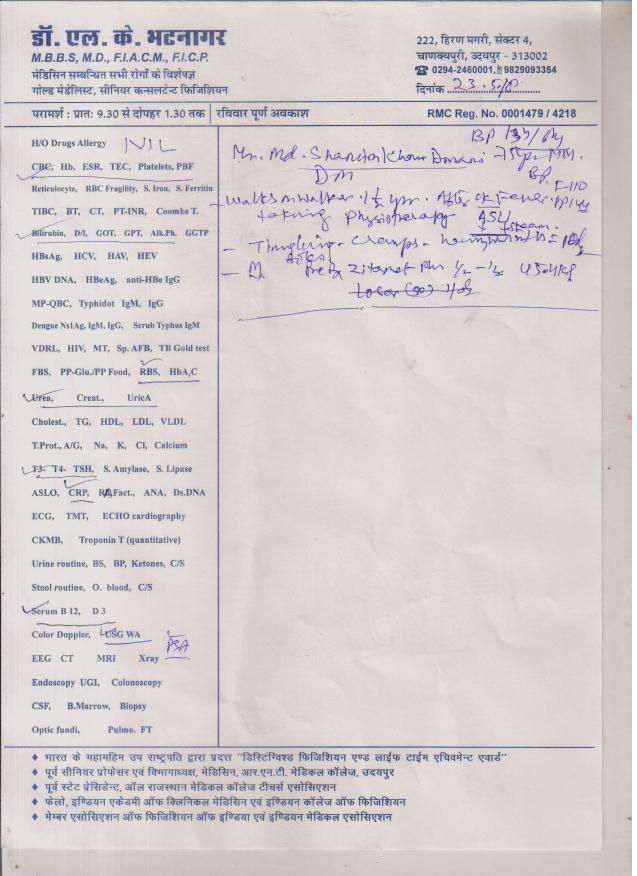 डॉ. एल. के. भटनागर
M.B.B.S, M.D., F.I.A.C.M., F.I.C.P.
मेडिसिन सम्बन्धित सभी रोगों के विशेषज्ञ
गोल्ड मेडेलिस्ट, सीनियर कन्सलटेन्ट फिजिशियन
222, हिरण मगरी, सेक्टर 4,
चाणक्यपुरी, उदयपुर - 313002
☎ 0294-2460001, 9829093354
दिनांक 23.5/
परामर्श : प्रात: 9.30 से दोपहर 1.30 तक | रविवार पूर्ण अवकाश
RMC Reg. No. 0001479 / 4218
H/O Drugs Allergy NIL
CBC, Hb, ESR, TEC, Platelets, PBF
Reticulocyte, RBC Fragility, S. Iron, S. Ferritin
TIBC, BT, CT, PT-INR, Coombs T.
Bilirubin, D/I, GOT, GPT, Alk.Ph. GGTP
HBsAg, HCV, HAV, HEV
HBV DNA, HBeAg, anti-HBe IgG
MP-QBC, Typhidot IgM, IgG
Dengue Ns1Ag, IgM, IgG, Scrub Typhus IgM
VDRL, HIV, MT, Sp. AFB, TB Gold test
FBS, PP-Glu./PP Food, RBS, HbA,C
Urea, Creat., UricA
Cholest., TG, HDL, LDL, VLDL
T.Prot., A/G, Na, K, Cl, Calcium
T3- T4- TSH, S. Amylase, S. Lipase
ASLO, CRP, RA Fact., ANA, Ds.DNA
ECG, TMT, ECHO cardiography
CKMB, Troponin T (quantitative)
Urine routine, BS, BP, Ketones, C/S
Stool routine, O. blood, C/S
Serum B 12, D 3
Color Doppler, USG WA
PSA
EEG CT MRI Xray
Endoscopy UGI, Colonoscopy
CSF, B.Marrow, Biopsy
Optic fundi, Pulmo. FT
BP
Mr. Md.
DM
BP
Walks walker 1½ yr. After Fever
taking Physiotherapy
- Cramps -
½ - ½
◆ भारत के महामहिम उप राष्ट्रपति द्वारा प्रदत्त "डिस्टिंग्विश्ड फिजिशियन एण्ड लाईफ टाईम एचिवमेन्ट एवार्ड"
◆ पूर्व सीनियर प्रोफेसर एवं विभागाध्यक्ष, मेडिसिन, आर.एन.टी. मेडिकल कॉलेज, उदयपुर
◆ पूर्व स्टेट प्रेसिडेन्ट, ऑल राजस्थान मेडिकल कॉलेज टीचर्स एसोसिएशन
◆ फेलो, इण्डियन एकेडमी ऑफ क्लिनिकल मेडिसिन एवं इण्डियन कॉलेज ऑफ फिजिशियन
◆ मेम्बर एसोसिएशन ऑफ फिजिशियन ऑफ इण्डिया एवं इण्डियन मेडिकल एसोसिएशन